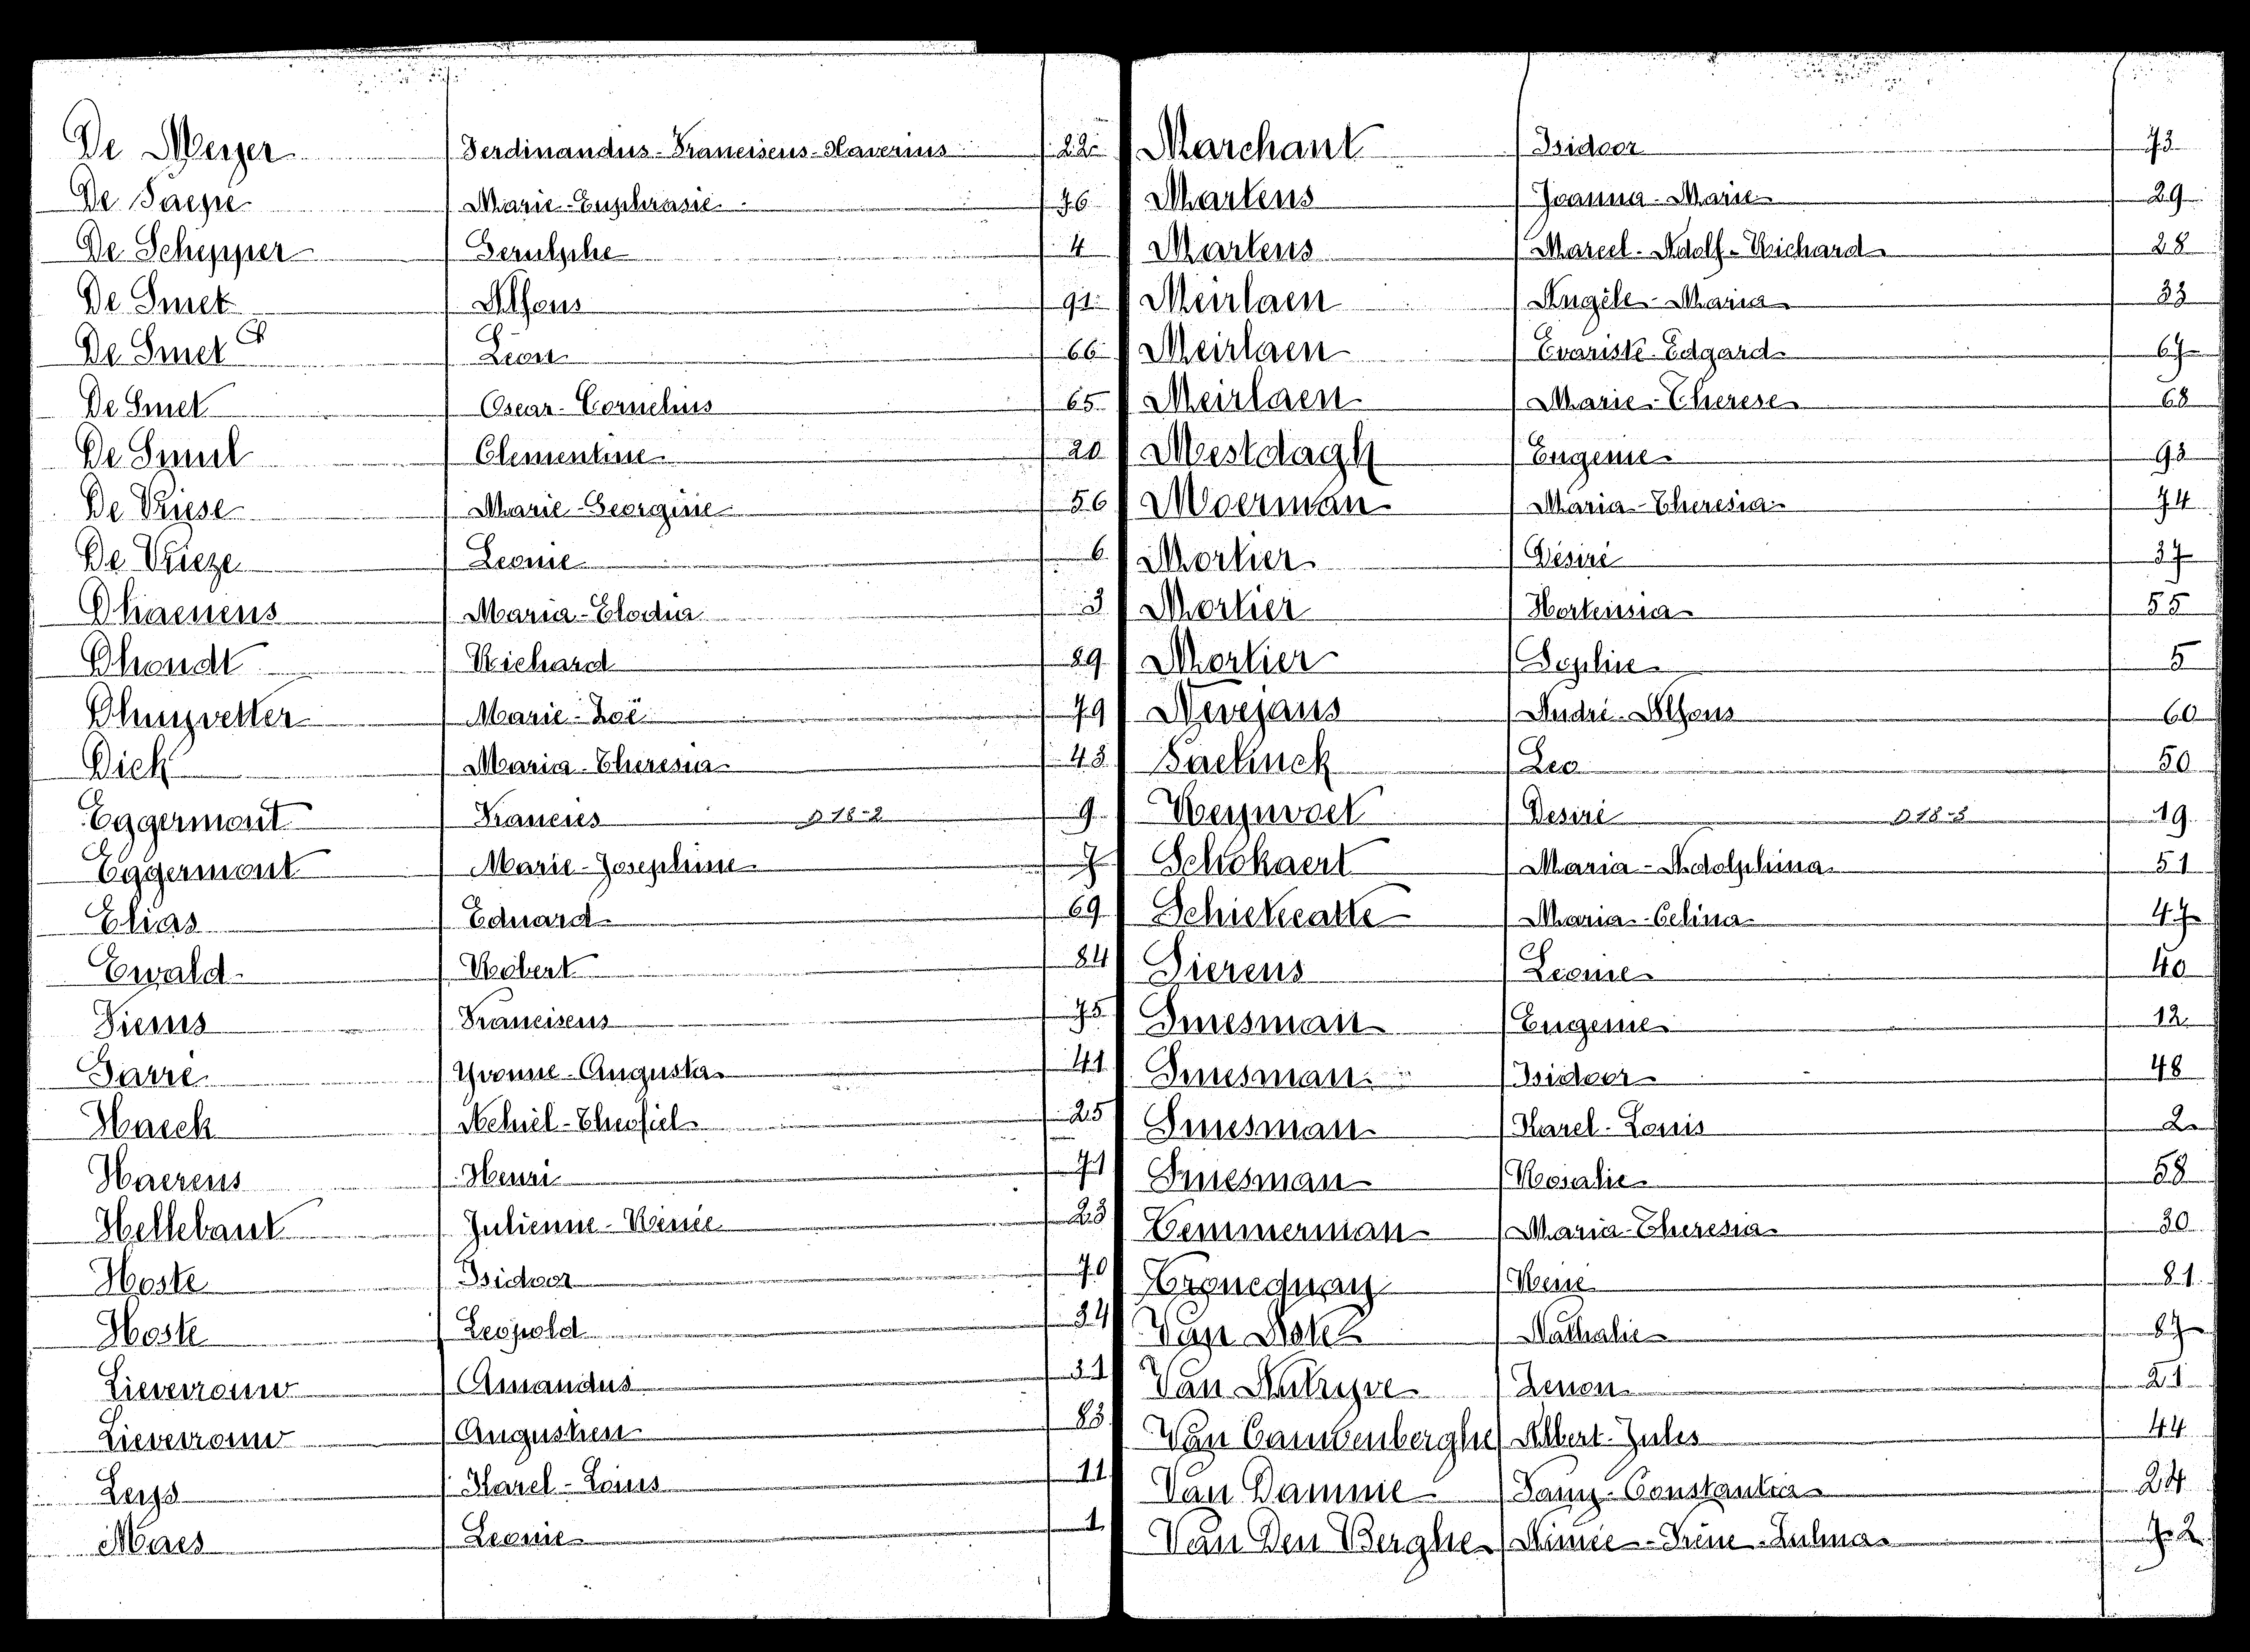 De Meyer Ferdinandus-Franciscus-Xaverius 22
De Paepe Marie-Euphrasie 76
De Schepper Serulphe 4
De Smet Alfons 91
De Smet Léon 66
De Smet Oscar-Cornelius 65
De Smul Clementine 20
De Vriese Marie-Georgine 56
De Vrieze Leonie 6
Dhaenens Maria-Elodia 3
Dhondt Richard 89
Dhuyvetter Marie-Zoë 79
Dick Maria-Theresia 43
Eggermont Francies D 18-2 9
Eggermont Marie-Josephine 7
Elias Eduard 69
Ewald Robert 84
Fiems Franciscus 75
Farre Yvonne-Augusta 41
Haeck Achiel-Theofiel 25
Haerens Henri 71
Hellebaut Julienne-Renée 23
Hoste Isidoor 70
Hoste Leopold 34
Lieverrouw Amandus 31
Lieverrouw Augustien 83
Leys Karel-Louis 11
Maes Leonie 1
Marchant Isidoor 73
Martens Joanna-Marie 29
Martens Marcel-Adolf-Richard 28
Meirlaen Angèle-Maria 33
Meirlaen Evariste-Edgard 67
Meirlaen Marie-Therese 68
Mestdagh Eugenie 93
Moerman Maria-Theresia 74
Mortier Désiré 37
Mortier Hortensia 55
Mortier Sophie 5
Nevejans André-Alfons 60
Paelinck Leo 50
Reynvoet Desiré 19
Schokaert Maria-Adolphina 51
Schietecatte Maria-Celina 47
Sierens Leonie 40
Smesman Eugenie 12
Smesman Isidoor 48
Smesman Karel-Louis 2
Smesman Rosalie 58
Temmerman Maria-Theresia 30
Troncquay René 81
Van Nathalie 87
Van Autryve Zenon 21
Van Cauwenberghe Albert-Jules 44
Van Damme Fany-Constantia 24
Van Den Berghe Aimée-Irène-Zulma 72